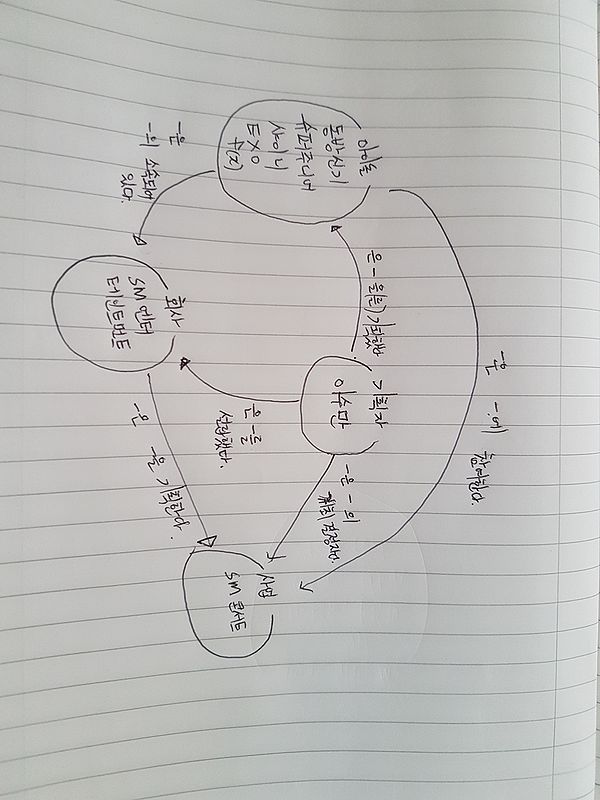 아이돌
동방신기
슈퍼주니어
샤이니
EXO
f(x)
-은
-의 소속되어
있다.
회사
SM 엔터
테인트먼트
은 - 을(를) 기획했다.
기획자
이수만
은 -를
설립했다.
-은 -에 참여한다.
-은 -의
최종 결정자다.
-은 -을 기획한다.
사업
SM 콘서트